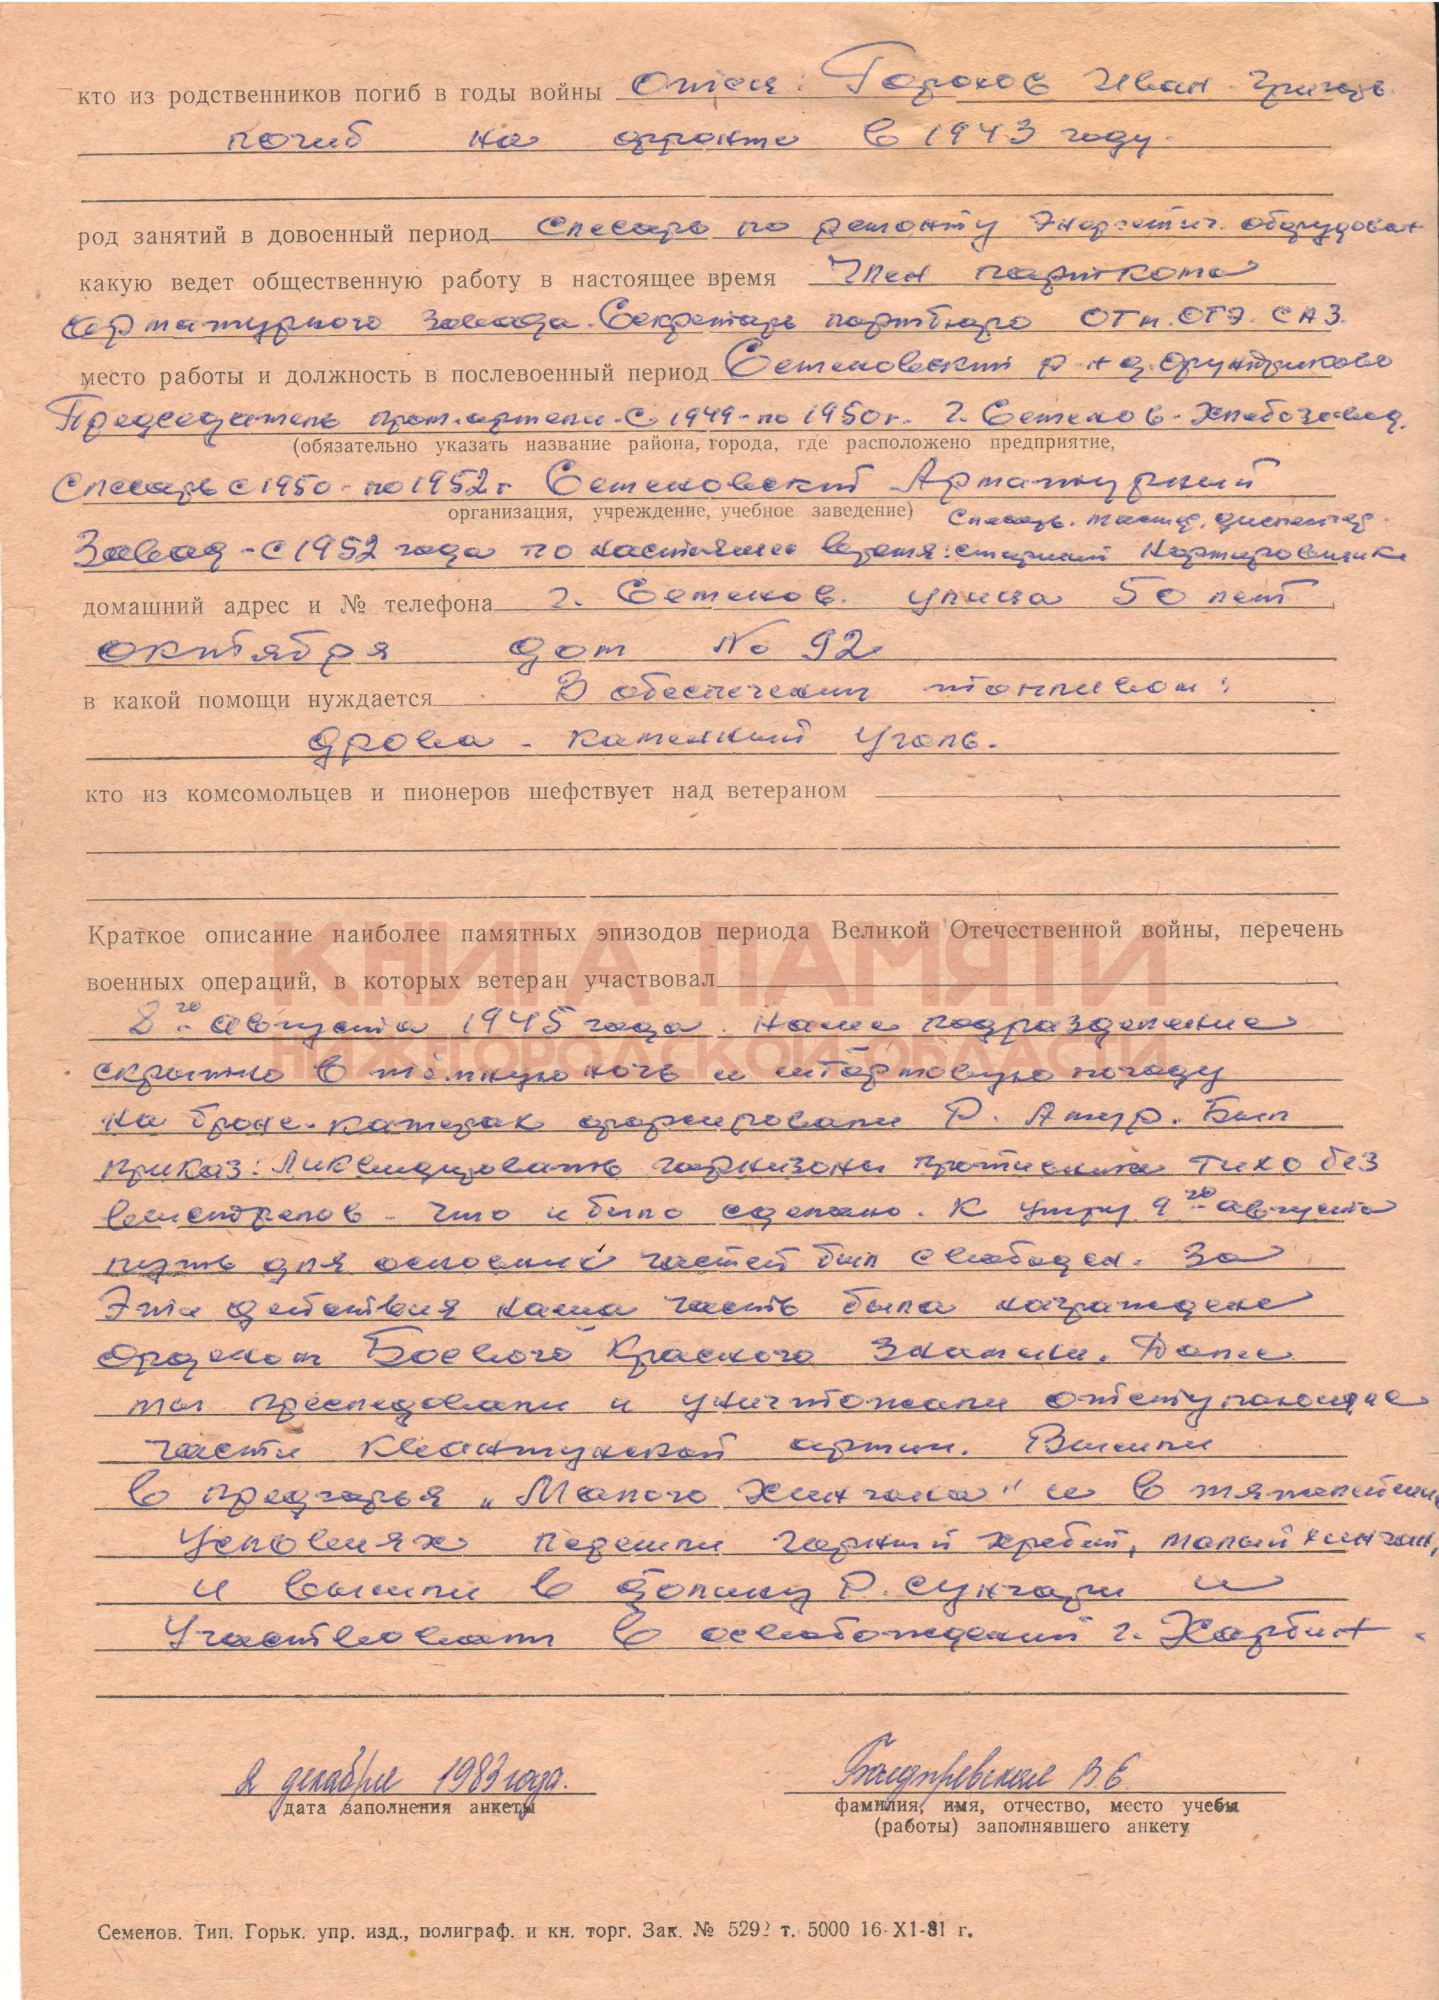 кто из родственников погиб в годы войны Отец: Горохов Иван Григорь.
погиб на фронте в 1943 году.
род занятий в довоенный период Слесарь по ремонту Энергетич. оборудован
какую ведет общественную работу в настоящее время Член парткома
Арматурного завода. Секретарь партбюро ОТК. ОГЭ. САЗ.
место работы и должность в послевоенный период Семеновский р-н д.
Председатель пром.артели. С 1949-по 1950 г. г. Семенов-Хлебозавод.
(обязательно указать название района, города, где расположено предприятие,
Слесарь с 1950-по 1952 г Семеновский Арматурный
организация, учреждение, учебное заведение) Слесарь. мастер, диспетчер.
Завод - С 1952 года по настоящее время: старший нормировщик
домашний адрес и № телефона г. Семенов. улица 50 лет
октября дом № 92
в какой помощи нуждается В обеспечении топливом:
дрова - каменный уголь.
кто из комсомольцев и пионеров шефствует над ветераном
КНИГА ПАМЯТИ
НИЖЕГОРОДСКОЙ ОБЛАСТИ
Краткое описание наиболее памятных эпизодов периода Великой Отечественной войны, перечень
военных операций, в которых ветеран участвовал
8го августа 1945 года. Наше подразделение
скрытно в тёмную ночь и штормовую погоду
на броне-катерах форсировали Р. Амур. Был
приказ: Ликвидировать гарнизоны противника тихо без
выстрелов - что и было сделано. К утру 9го августа
путь для основных частей был свободен. За
Эти действия наша часть была награждена
орденом Боевого Красного Знамени. Далее
мы преследовали и уничтожали отступающие
части Квантунской армии. Вышли
в предгорья "Малого Хингана" и в тяжелейших
условиях перешли горный хребет, малый хинган,
и вышли в долину Р. Сунгари и
Участвовали в освобождении г. Харбин.
2 декабря 1983 года. В.Е.
дата заполнения анкеты
фамилия, имя, отчество, место учебы
(работы) заполнявшего анкету
Семенов. Тип. Горьк. упр. изд., полиграф. и кн. торг. Зак. № 5292 т. 5000 16-XI-81 г.